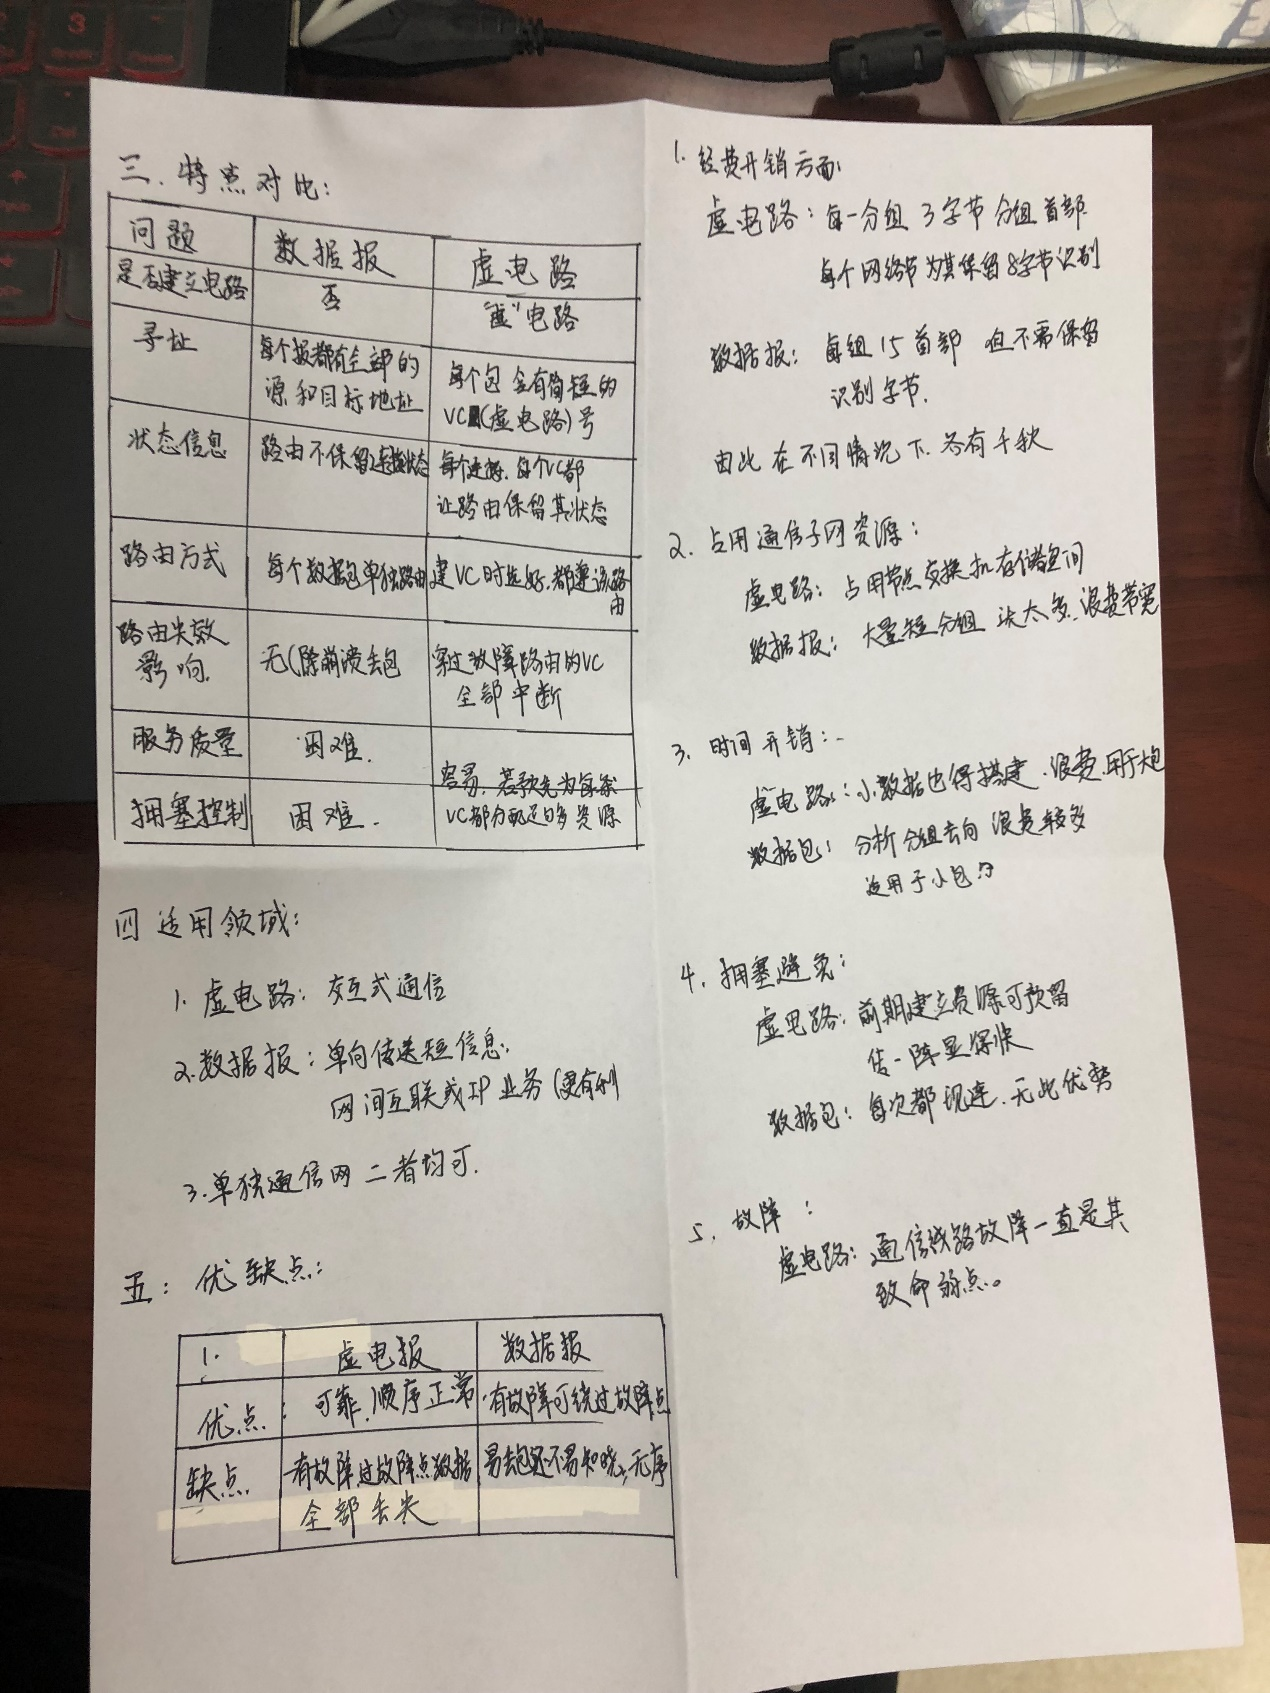 三.特点对比:
问题 数据报 虚电路
是否建立电路 否 “虚”电路
寻址 每个报都有全部的 每个包含有简短的
源和目标地址 VC(虚电路)号
状态信息 路由不保留连接状态 每个连接.每个VC都
让路由保留其状态
路由方式 每个数据包单独路由 建VC时选好.都遵该路
由
路由失效 无(除崩溃丢包 穿过故障路由的VC
影响. 全部中断
服务质量 困难.
容易.若预先为每条
拥塞控制 困难. VC都分配足够多资源
四 适用领域:
1.虚电路:交互式通信
2.数据报:单向传送短信息;
网间互联或IP业务(更有利
3.单独通信网 二者均可.
五:优缺点:
1. 虚电报 数据报
优点: 可靠.顺序正常 有故障可绕过故障点
缺点 有故障,过故障点数据 易丢包还不易知晓,无序
全部丢失
1.经费开销方面:
虚电路:每一分组 3字节 分组首部
每个网络节为其保留8字节识别
数据报:每组15首部 但不需保留
识别字节.
由此在不同情况下.各有千秋
2.占用通信子网资源:
虚电路:占用节点交换机存储空间
数据报:大量短分组 太多.浪费带宽
3.时间开销:
虚电路:小数据也得搭建.浪费.用于大包
数据包:分析分组去向 浪费较多
适用于小包
4.拥塞避免:
虚电路:前期建立资源可预留
传一阵显得快
数据包:每次都现连.无此优势
5.故障:
虚电路:通信线路故障一直是其
致命弱点。